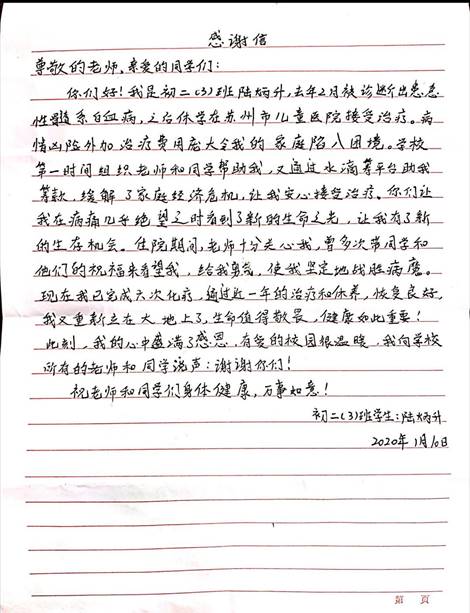 感谢信
尊敬的老师、亲爱的同学们:
你们好!我是初二(3)班陆炳升,去年2月被诊断出患急
性髓系白血病,之后休学在苏州市儿童医院接受治疗。病
情凶险外加治疗费用庞大令我的家庭陷入困境。学校
第一时间组织老师和同学帮助我,又通过水滴筹平台助我
筹款,缓解了家庭经济危机,让我安心接受治疗。你们让
我在病痛几乎绝望之时看到了新的生命之光,让我有了新
的生存机会。住院期间,老师十分关心我,曾多次带同学和
他们的祝福来看望我,给我勇气,使我坚定地战胜病魔。
现在我已完成六次化疗,通过近一年的治疗和休养,恢复良好,
我又重新立在大地上了,生命值得敬畏,健康如此重要!
此刻,我的心中盛满了感恩,有爱的校园很温暖,我向学校
所有的老师和同学说声:谢谢你们!
祝老师和同学们身体健康,万事如意!
初二(3)班学生:陆炳升
2020年1月10日
第 页